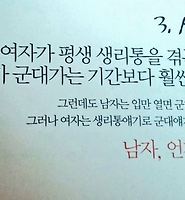 3.
여자가 평생 생리통을 겪
가 군대가는 기간보다 훨씬
그런데도 남자는 입만 열면 군
그러나 여자는 생리통얘기로 군대얘
남자, 언